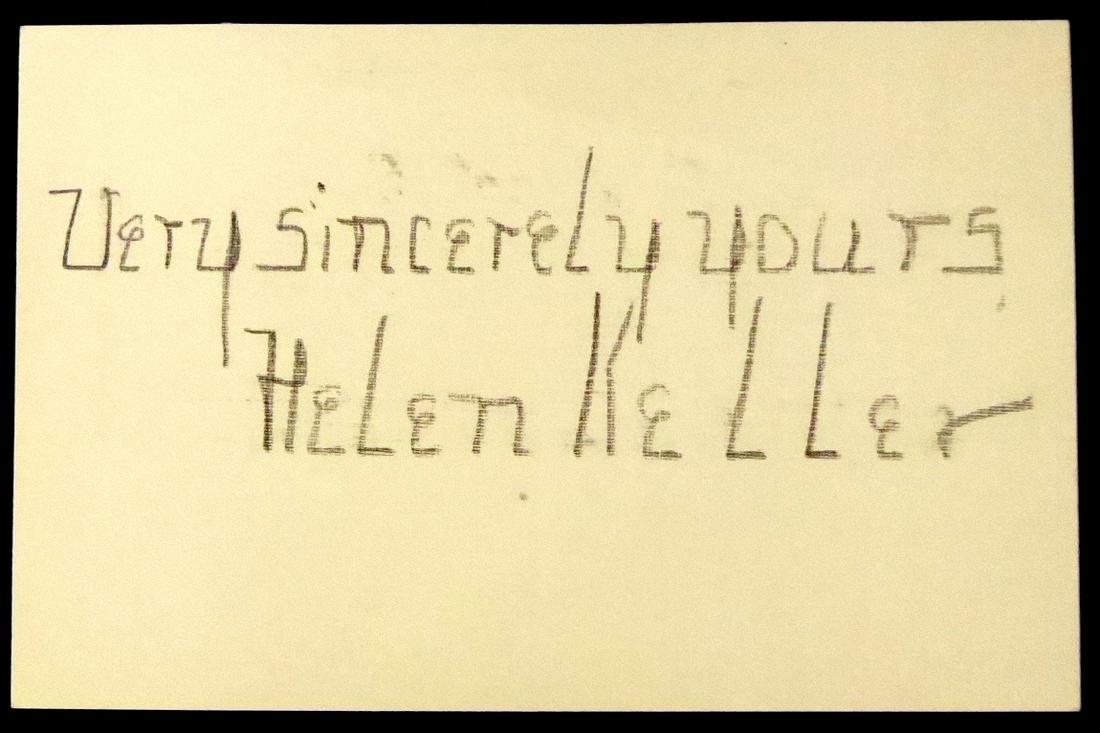 Very sincerely yours
Helen Keller